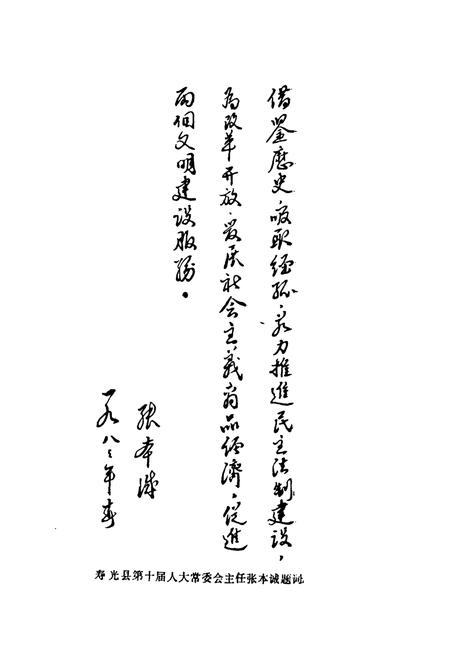 借鉴歷史、吸取经验、努力推進民主法制建设，
为改革开放、发展社会主義商品经濟，促進
两個文明建设服务。
张本诚
一九八八年春
寿光县第十届人大常委会主任张本诚题词